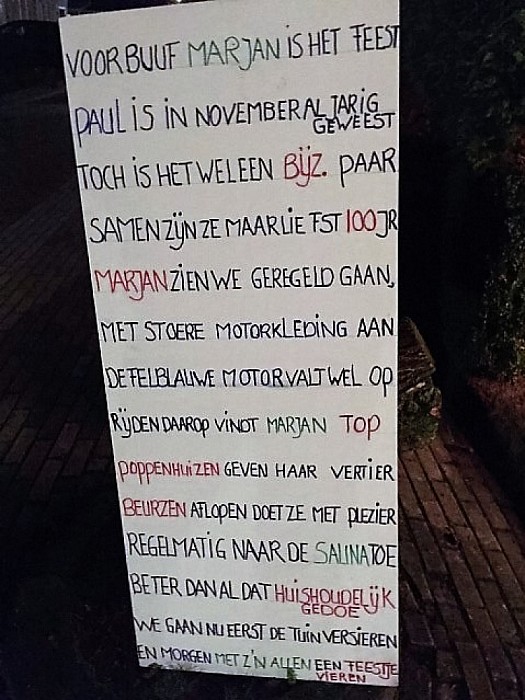 VOOR BUUF MARJAN IS HET FEEST
PAUL IS IN NOVEMBER AL JARIG
GEWEEST
TOCH IS HET WEL EEN BIJZ. PAAR
SAMEN ZIJN ZE MAAR LIEFST 100 JR
MARJAN ZIEN WE GEREGELD GAAN,
MET STOERE MOTORKLEDING AAN
DE FELBLAUWE MOTOR VALT WEL OP
RIJDEN DAAROP VINDT MARJAN TOP
POPPENHUIZEN GEVEN HAAR VERTIER
BEURZEN AFLOPEN DOET ZE MET PLEZIER
REGELMATIG NAAR DE SAUNA TOE
BETER DAN AL DAT HUISHOUDELIJK
GEDOE
WE GAAN NU EERST DE TUIN VERSIEREN
EN MORGEN MET Z'N ALLEN EEN FEESTJE
VIEREN